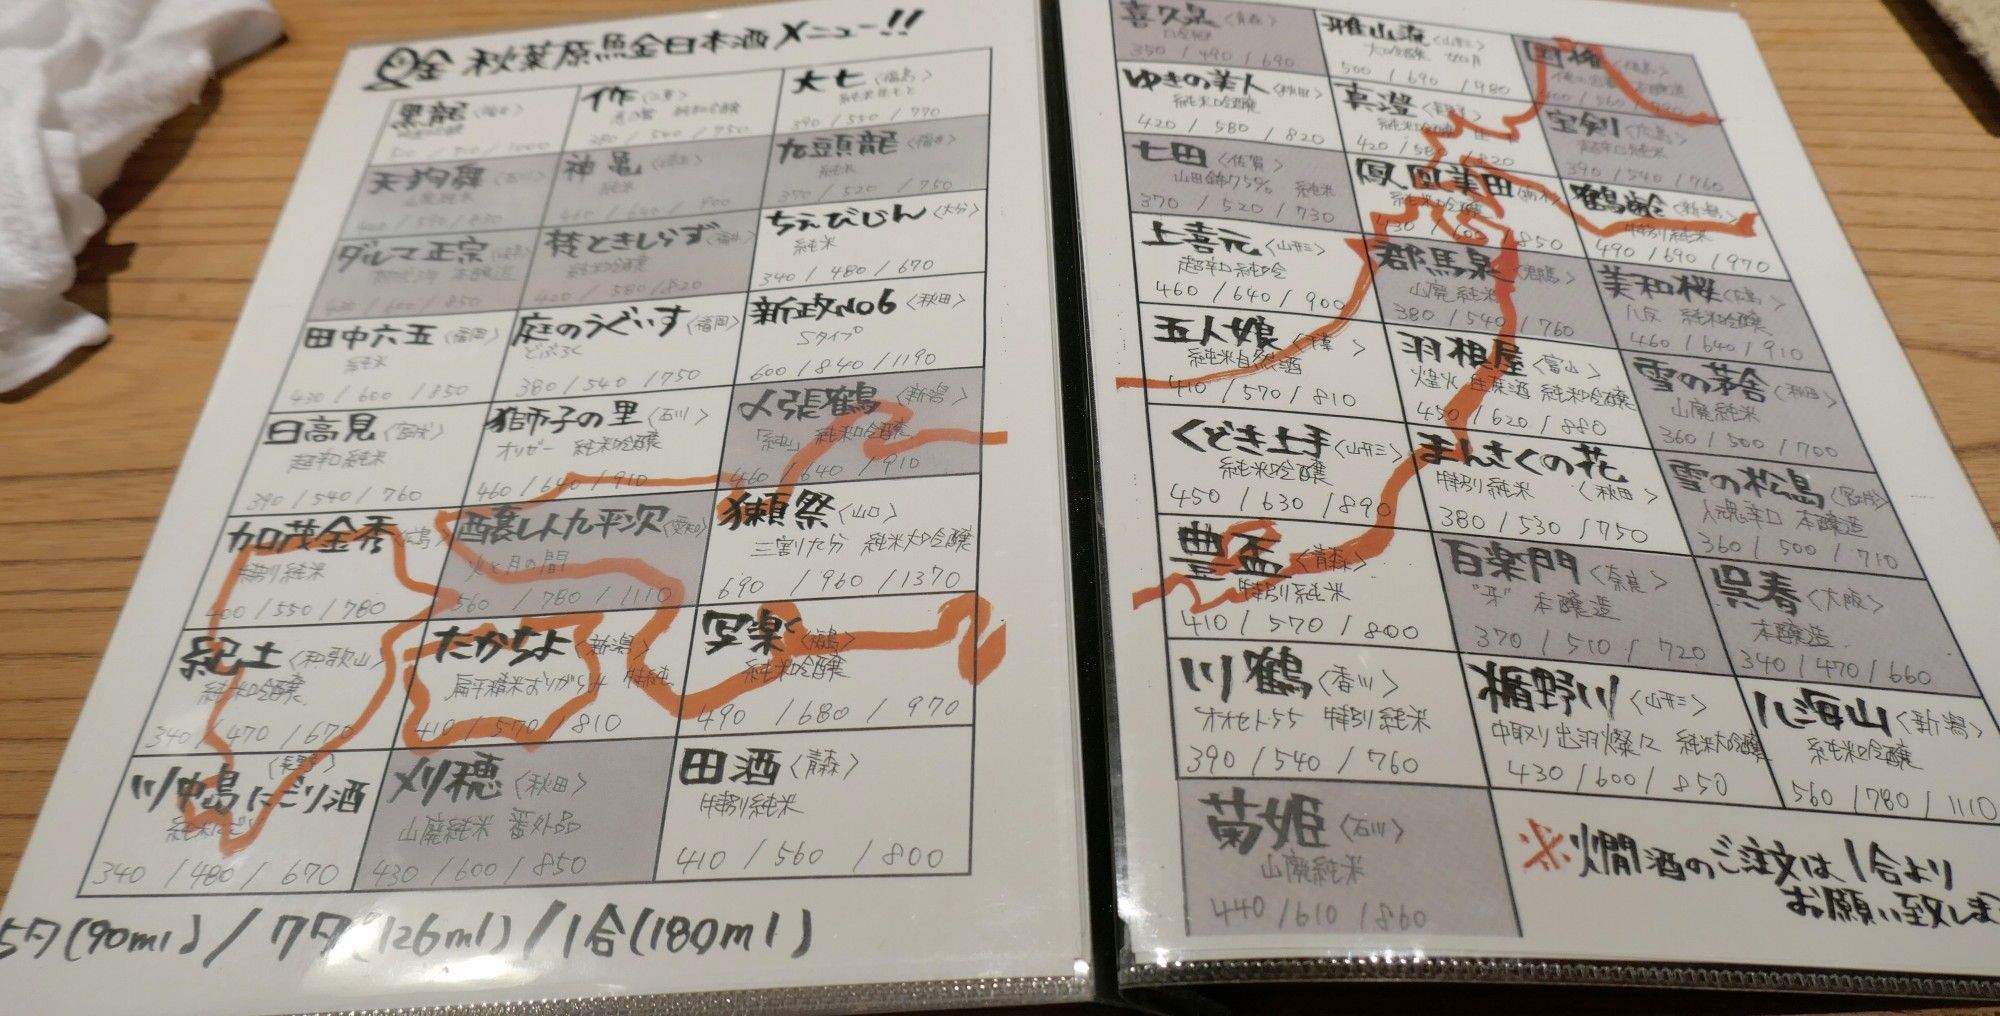 魚金 秋葉原魚金日本酒メニュー!!
黒龍〈福井〉
作〈三重〉
純米吟醸
大七〈福島〉
純米生もと
390 / 550 / 770
天狗舞〈石川〉
山廃純米
神亀〈埼玉〉
純米
460 / 640 / 900
九頭龍〈福井〉
純米
370 / 520 / 750
ダルマ正宗
本醸造
430 / 600 / 850
梵ときしらず〈福井〉
純米吟醸
420 / 580 / 820
ちえびじん〈大分〉
純米
340 / 480 / 670
田中六五〈福岡〉
純米
430 / 600 / 850
庭のうぐいす〈福岡〉
どぶろく
380 / 540 / 750
新政No6〈秋田〉
Sタイプ
600 / 840 / 1190
日高見〈宮城〉
超辛口純米
390 / 540 / 760
獅子の里〈石川〉
オリゼー 純米吟醸
460 / 640 / 910
〆張鶴〈新潟〉
「純」 純米吟醸
460 / 640 / 910
加茂金秀〈広島〉
特別純米
400 / 550 / 780
醸し人九平次〈愛知〉
火と月の間
560 / 780 / 1110
獺祭〈山口〉
三割九分 純米大吟醸
690 / 960 / 1370
紀土〈和歌山〉
純米吟醸
340 / 470 / 670
たかちよ〈新潟〉
扁平精米おりがらみ 特純
410 / 570 / 810
写楽〈福島〉
純米吟醸
490 / 680 / 970
川中島にごり酒〈長野〉
純米にごり
340 / 480 / 670
刈穂〈秋田〉
山廃純米 番外品
430 / 600 / 850
田酒〈青森〉
特別純米
410 / 560 / 800
5夕(90ml) / 7夕(126ml) / 1合(180ml)
喜久泉〈青森〉
吟醸
350 / 490 / 690
雅山流〈山形〉
大吟醸 如月
500 / 690 / 980
国権〈福島〉
本醸造
400 / 560 / 790
ゆきの美人〈秋田〉
純米吟醸
420 / 580 / 820
真澄〈長野〉
純米吟醸
420 / 580 / 820
宝剣〈広島〉
超辛口純米
390 / 540 / 760
七田〈佐賀〉
山田錦75% 純米
370 / 520 / 730
鳳凰美田〈栃木〉
純米吟醸
430 / 600 / 850
鶴齢〈新潟〉
特別純米
490 / 690 / 970
上喜元〈山形〉
超辛口純吟
460 / 640 / 900
群馬泉〈群馬〉
山廃純米
380 / 540 / 760
美和桜〈広島〉
八反 純米吟醸
460 / 640 / 910
五人娘〈千葉〉
純米自然酒
410 / 570 / 810
羽根屋〈富山〉
煌火 生原酒 純米吟醸
450 / 620 / 880
雪の茅舎〈秋田〉
山廃純米
360 / 500 / 700
くどき上手〈山形〉
純米吟醸
450 / 630 / 890
まんさくの花
特別純米 〈秋田〉
380 / 530 / 750
雪の松島〈宮城〉
入魂辛口 本醸造
360 / 500 / 710
豊盃〈青森〉
特別純米
410 / 570 / 800
百楽門〈奈良〉
"冴" 本醸造
370 / 510 / 720
呉春〈大阪〉
本醸造
340 / 470 / 660
川鶴〈香川〉
オオセト55 特別純米
390 / 540 / 760
楯野川〈山形〉
中取り出羽燦々 純米大吟醸
430 / 600 / 850
八海山〈新潟〉
純米吟醸
560 / 780 / 1110
菊姫〈石川〉
山廃純米
440 / 610 / 860
※燗酒のご注文は1合より
お願い致しま